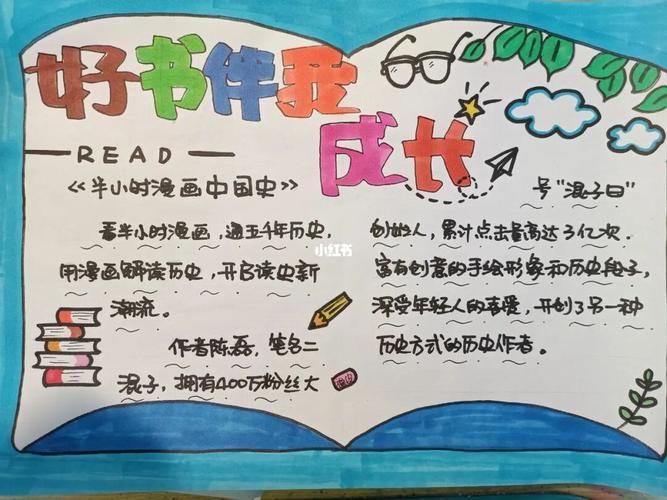 好书伴我
成长
READ
《半小时漫画中国史》
看半小时漫画，通五千年历史，
用漫画解读历史，开启读史新
潮流。
作者陈磊，笔名二
混子，拥有400万粉丝大
号"混子曰"
创始人，累计点击量高达3亿次.
富有创意的手绘形象和历史段子，
深受年轻人的喜爱，开创了另一种
历史方式的历史作者。
小红书